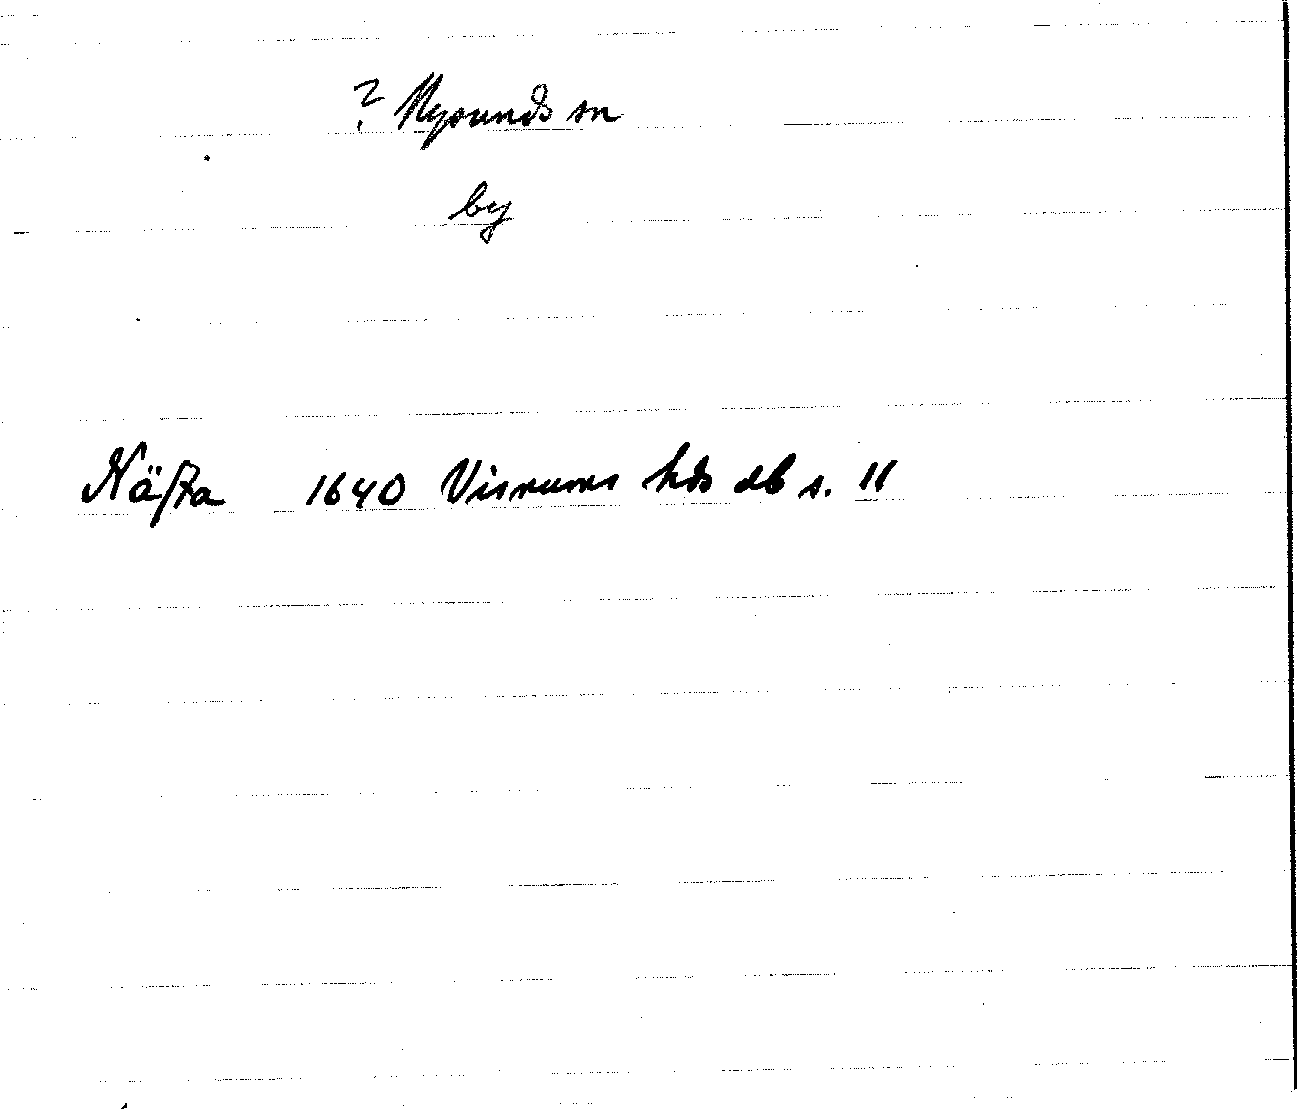 ? Nysunds sn
by
Näfta 1640 Visnums hds db s. 11